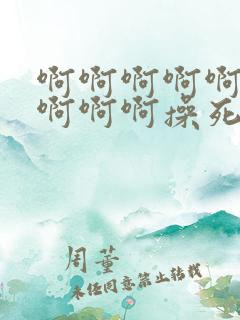 啊啊啊啊啊
啊啊啊操死
周董
未经同意禁止转载